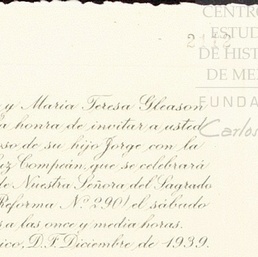 CENTRO
ESTUD
DE HIST
DE MEX
FUNDA
Carlos
y María Teresa Gleason,
a honra de invitar a usted
oso de su hijo Jorge con la
ez Compeán, que se celebrará
de Nuestra Señora del Sagrado
Reforma Nº 290) el sábado
s a las once y media horas.
ico, D. F. Diciembre de 1939.